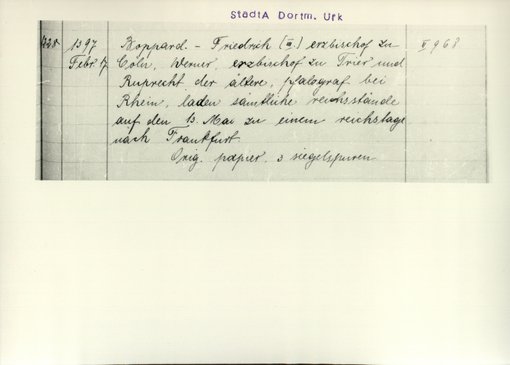 StadtA Dortm. Urk
1397 Boppard. - Friedrich (III.) erzbischof zu II 968
Febr. 7 Cöln, Werner, erzbischof zu Trier und
Ruprecht der ältere, pfalzgraf bei
Rhein, laden sämtliche reichsstände
auf den 13. Mai zu einem reichstage
nach Frankfurt.
Orig. papier 3 siegelspuren